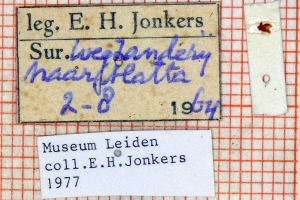 leg. E. H. Jonkers
Sur. Weg zanderij
naar Blatta
2-8 1964
Museum Leiden
coll.E.H.Jonkers
1977